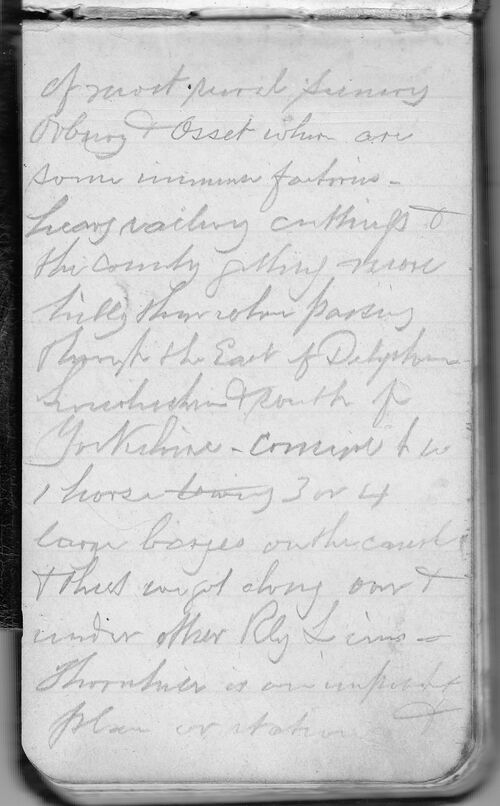 of most rural scenery
& Osset where are
some immense factories -
heavy railway cuttings &
the country getting more
hilly than when passing
through the East of Derbyshire
Lincolnshire & South of
Yorkshire -
1 horse towing 3 or 4
large barges on the canal
& thus we got along over &
under other Rly Lines -
is an
place or station &